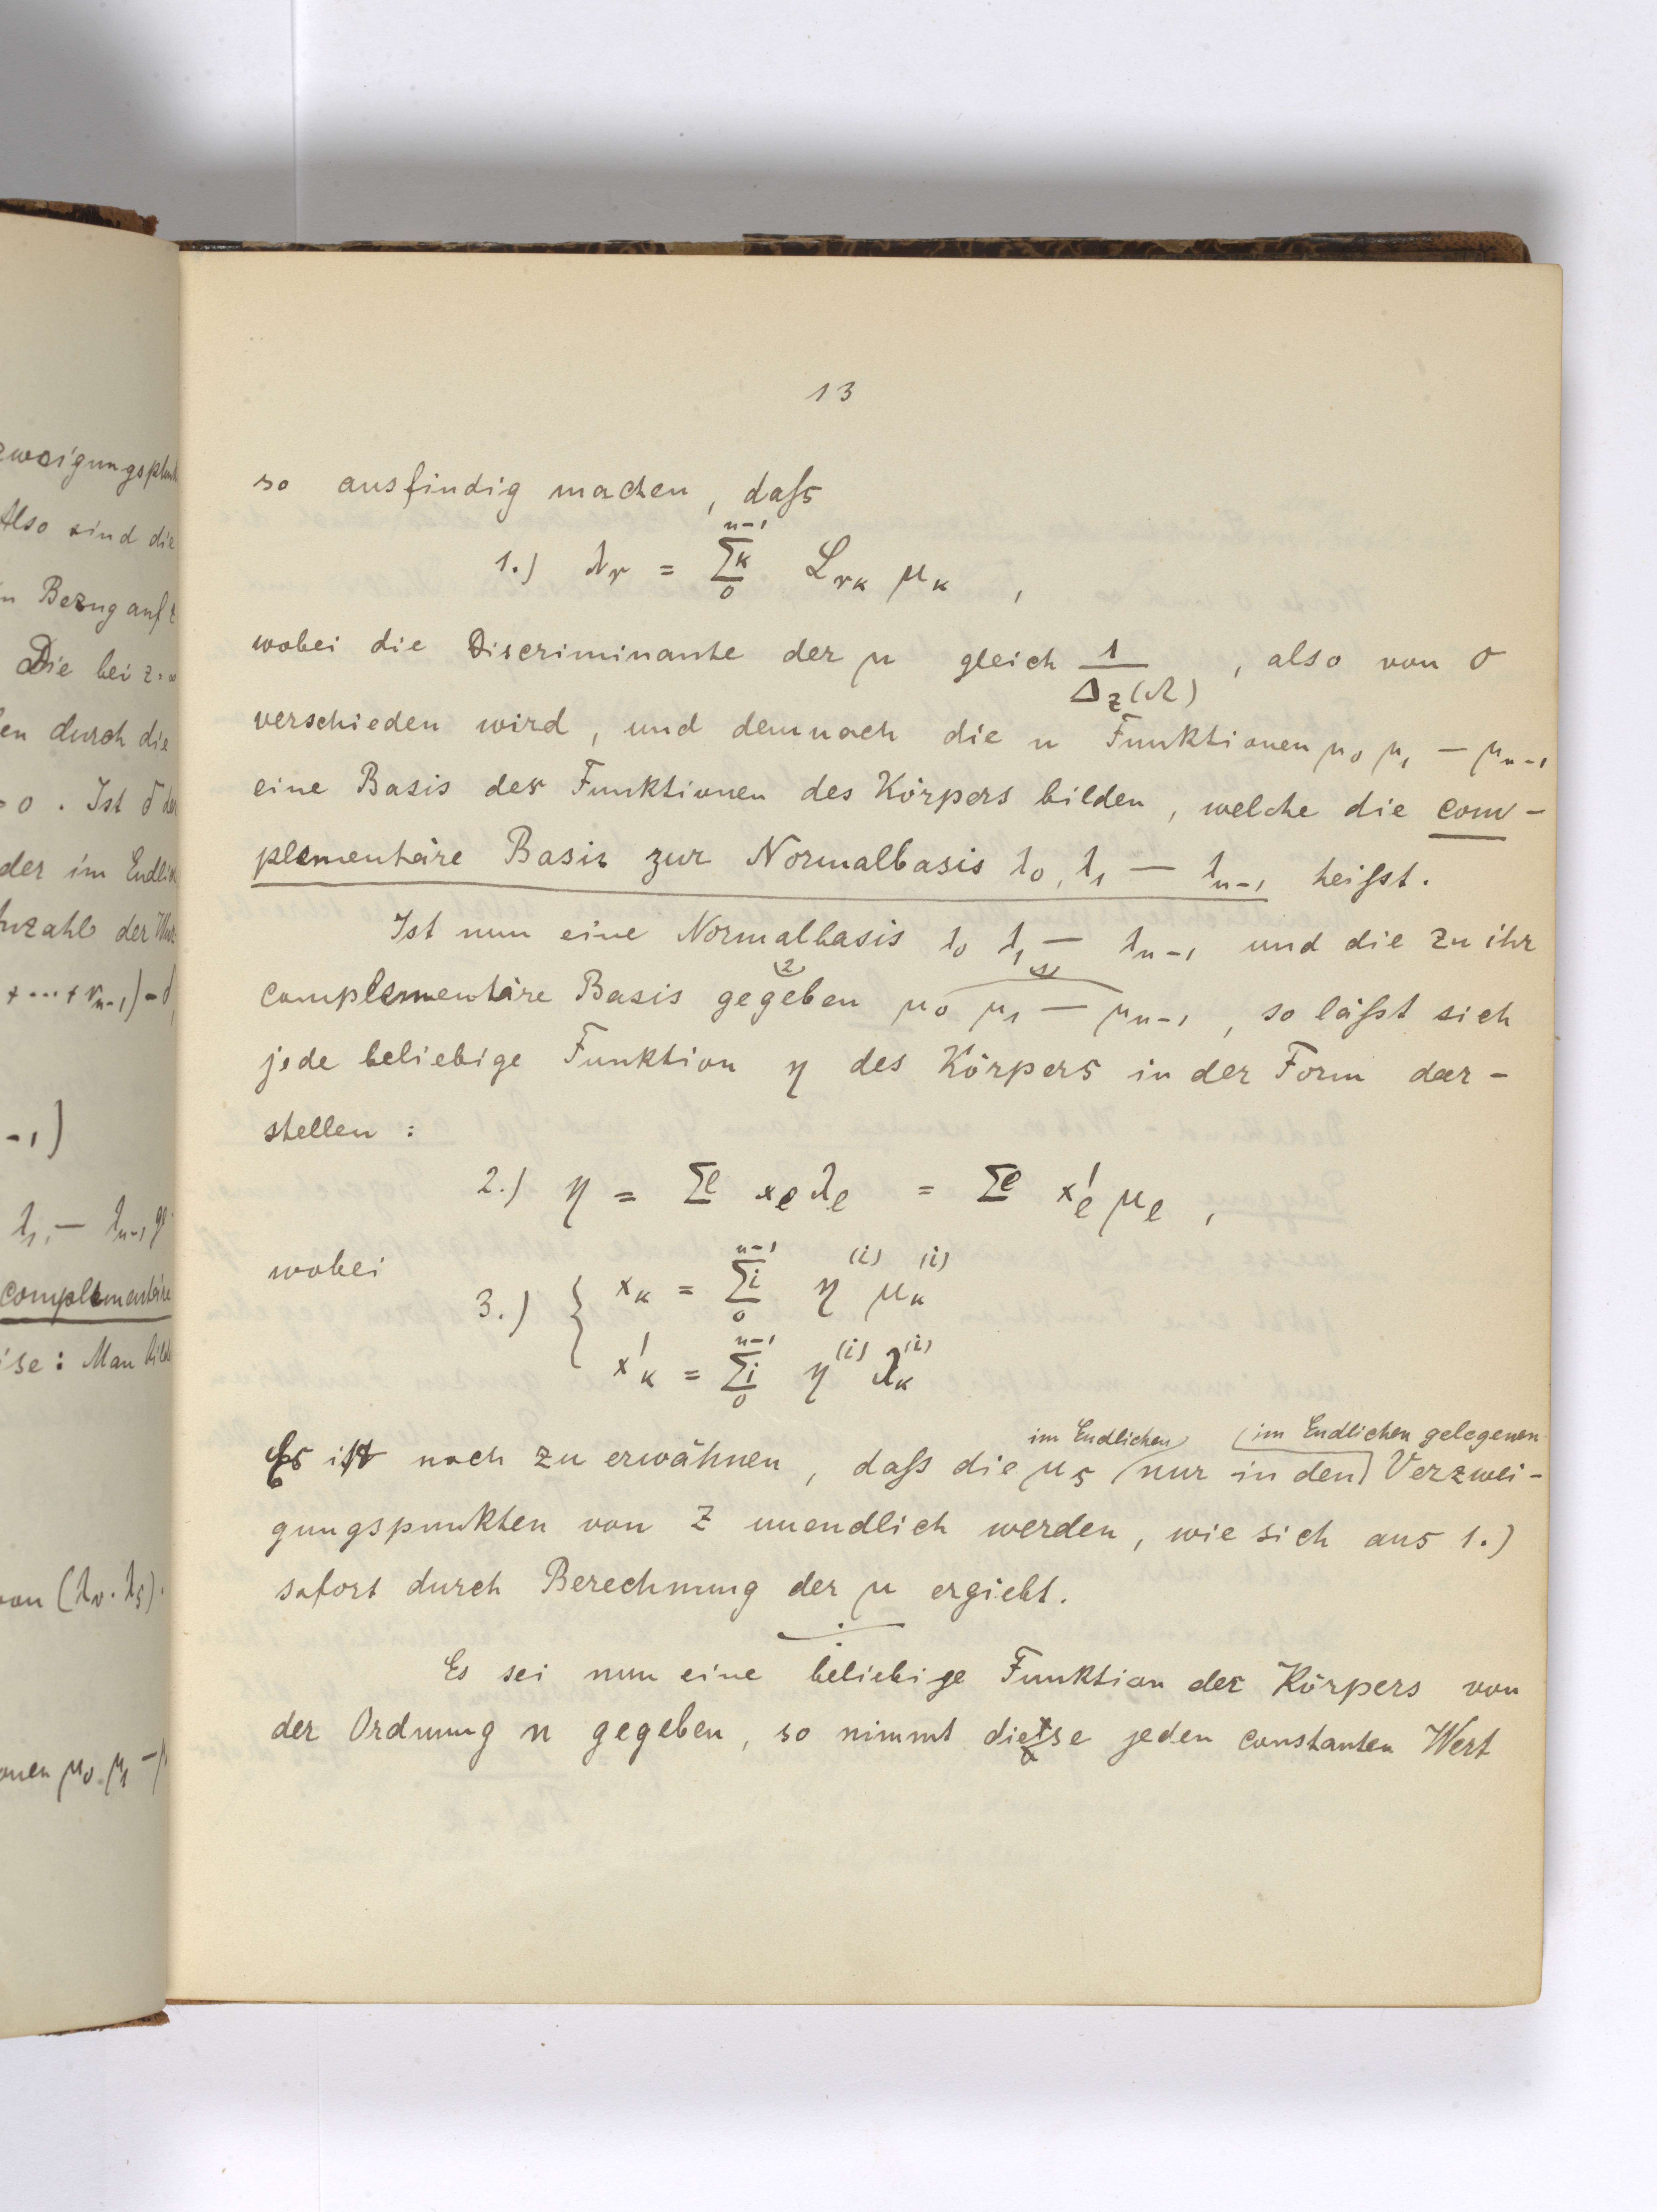 zweigungspkte
Also sind die
n Bezug auf z
Die bei z=∞
en durch die
=0. Ist δ der
der im Endlich
Anzahl der
+...+r_{n-1})-δ
-1)
λ_1, — λ_{n-1} ge
complementäre
ise: Man bilde
von (λ_r·λ_s).
onen μ_0 μ_1 —
13
so ausfindig machen, daſs
1.) λ_r = Σ^κ_{0}^{n-1} L_{rκ} μ_κ,
wobei die Discriminante der μ gleich 1/Δ_z(Λ), also von 0
verschieden wird, und demnach die n Funktionen μ_0 μ_1 — μ_{n-1}
eine Basis der Funktionen des Körpers bilden, welche die com-
plementäre Basis zur Normalbasis λ_0, λ_1 — λ_{n-1} heiſst.
Ist nun eine Normalbasis λ_0 λ_1 — λ_{n-1} und die zu ihr
complementäre Basis gegeben μ_0 μ_1 — μ_{n-1}, so läſst sich
jede beliebige Funktion η des Körpers in der Form dar-
stellen:
2.) η = Σ^e x_e λ_e = Σ^e x'_e μ_e,
wobei
3.) { x_κ = Σ^i_{0}^{n-1} η^{(i)} μ_κ^{(i)}
x'_κ = Σ^i_{0}^{n-1} η^{(i)} λ_κ^{(i)}
im Endlichen (im Endlichen gelegenen
Es ist noch zu erwähnen, daſs die μ_s nur in den Verzwei-
gungspunkten von z unendlich werden, wie sich aus 1.)
sofort durch Berechnung der μ ergiebt.
Es sei nun eine beliebige Funktion des Körpers von
der Ordnung n gegeben, so nimmt diese jeden constanten Wert